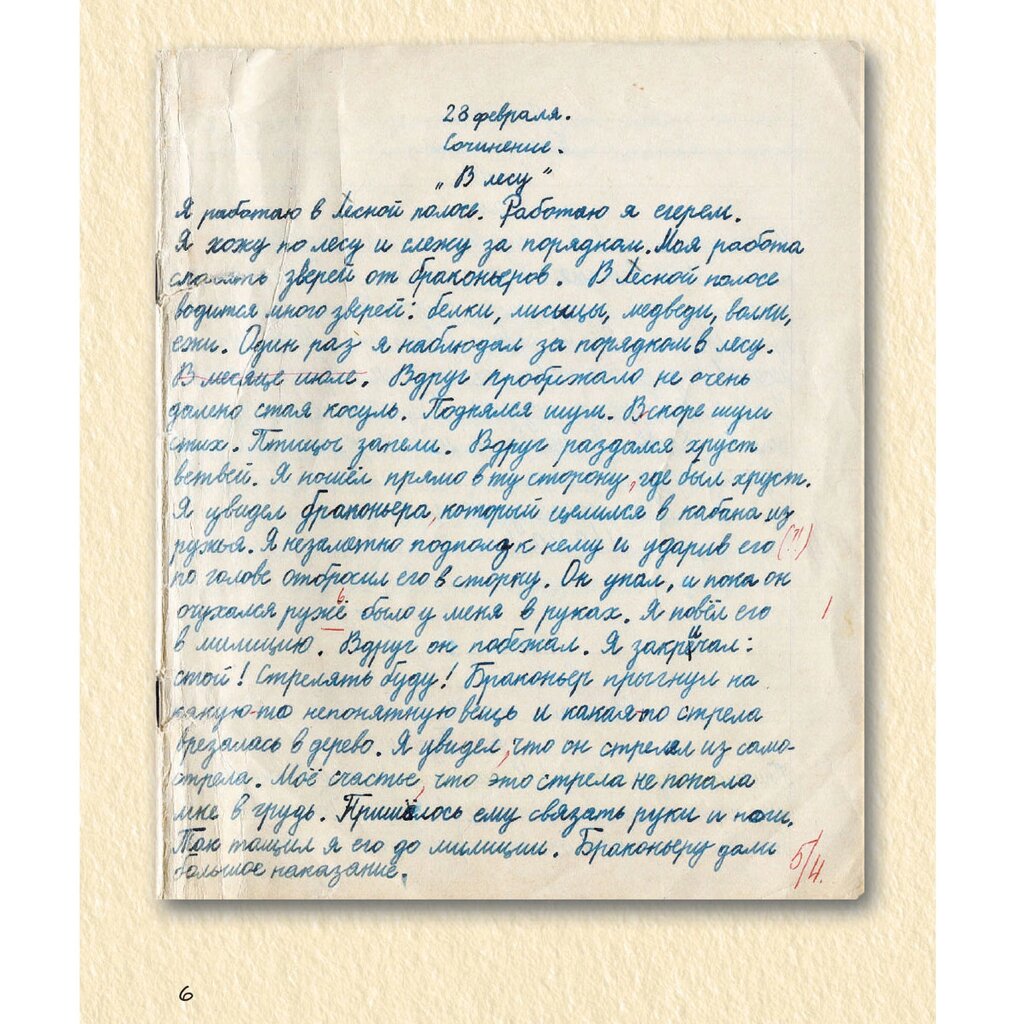 28 февраля.
Сочинение.
„В лесу"
Я работаю в Лесной полосе. Работаю я егерем.
Я хожу по лесу и слежу за порядком. Моя работа
спасать зверей от браконьеров. В Лесной полосе
водится много зверей: белки, лисицы, медведи, волки,
ежи. Один раз я наблюдал за порядком в лесу.
В месяце июле. Вдруг пробежало не очень
далеко стая косуль. Поднялся шум. Вскоре шум
стих. Птицы запели. Вдруг раздался хруст
ветвей. Я пошёл прямо в ту сторону, где был хруст.
Я увидел браконьера, который целился в кабана из
ружья. Я незаметно подполз к нему и ударив его (?!)
по голове отбросил его в сторку. Он упал, и пока он
очухался ружьё было у меня в руках. Я повёл его 1
в милицию. Вдруг он побежал. Я закричал:
стой! Стрелять буду! Браконьер прыгнул на
какую-то непонятную вещь и какая-то стрела
врезалась в дерево. Я увидел, что он стрелял из само-
стрела. Моё счастье, что это стрела не попала
мне в грудь. Пришлось ему связать руки и ноги.
Так тащил я его до милиции. Браконьеру дали
большое наказание. 5/4.
6